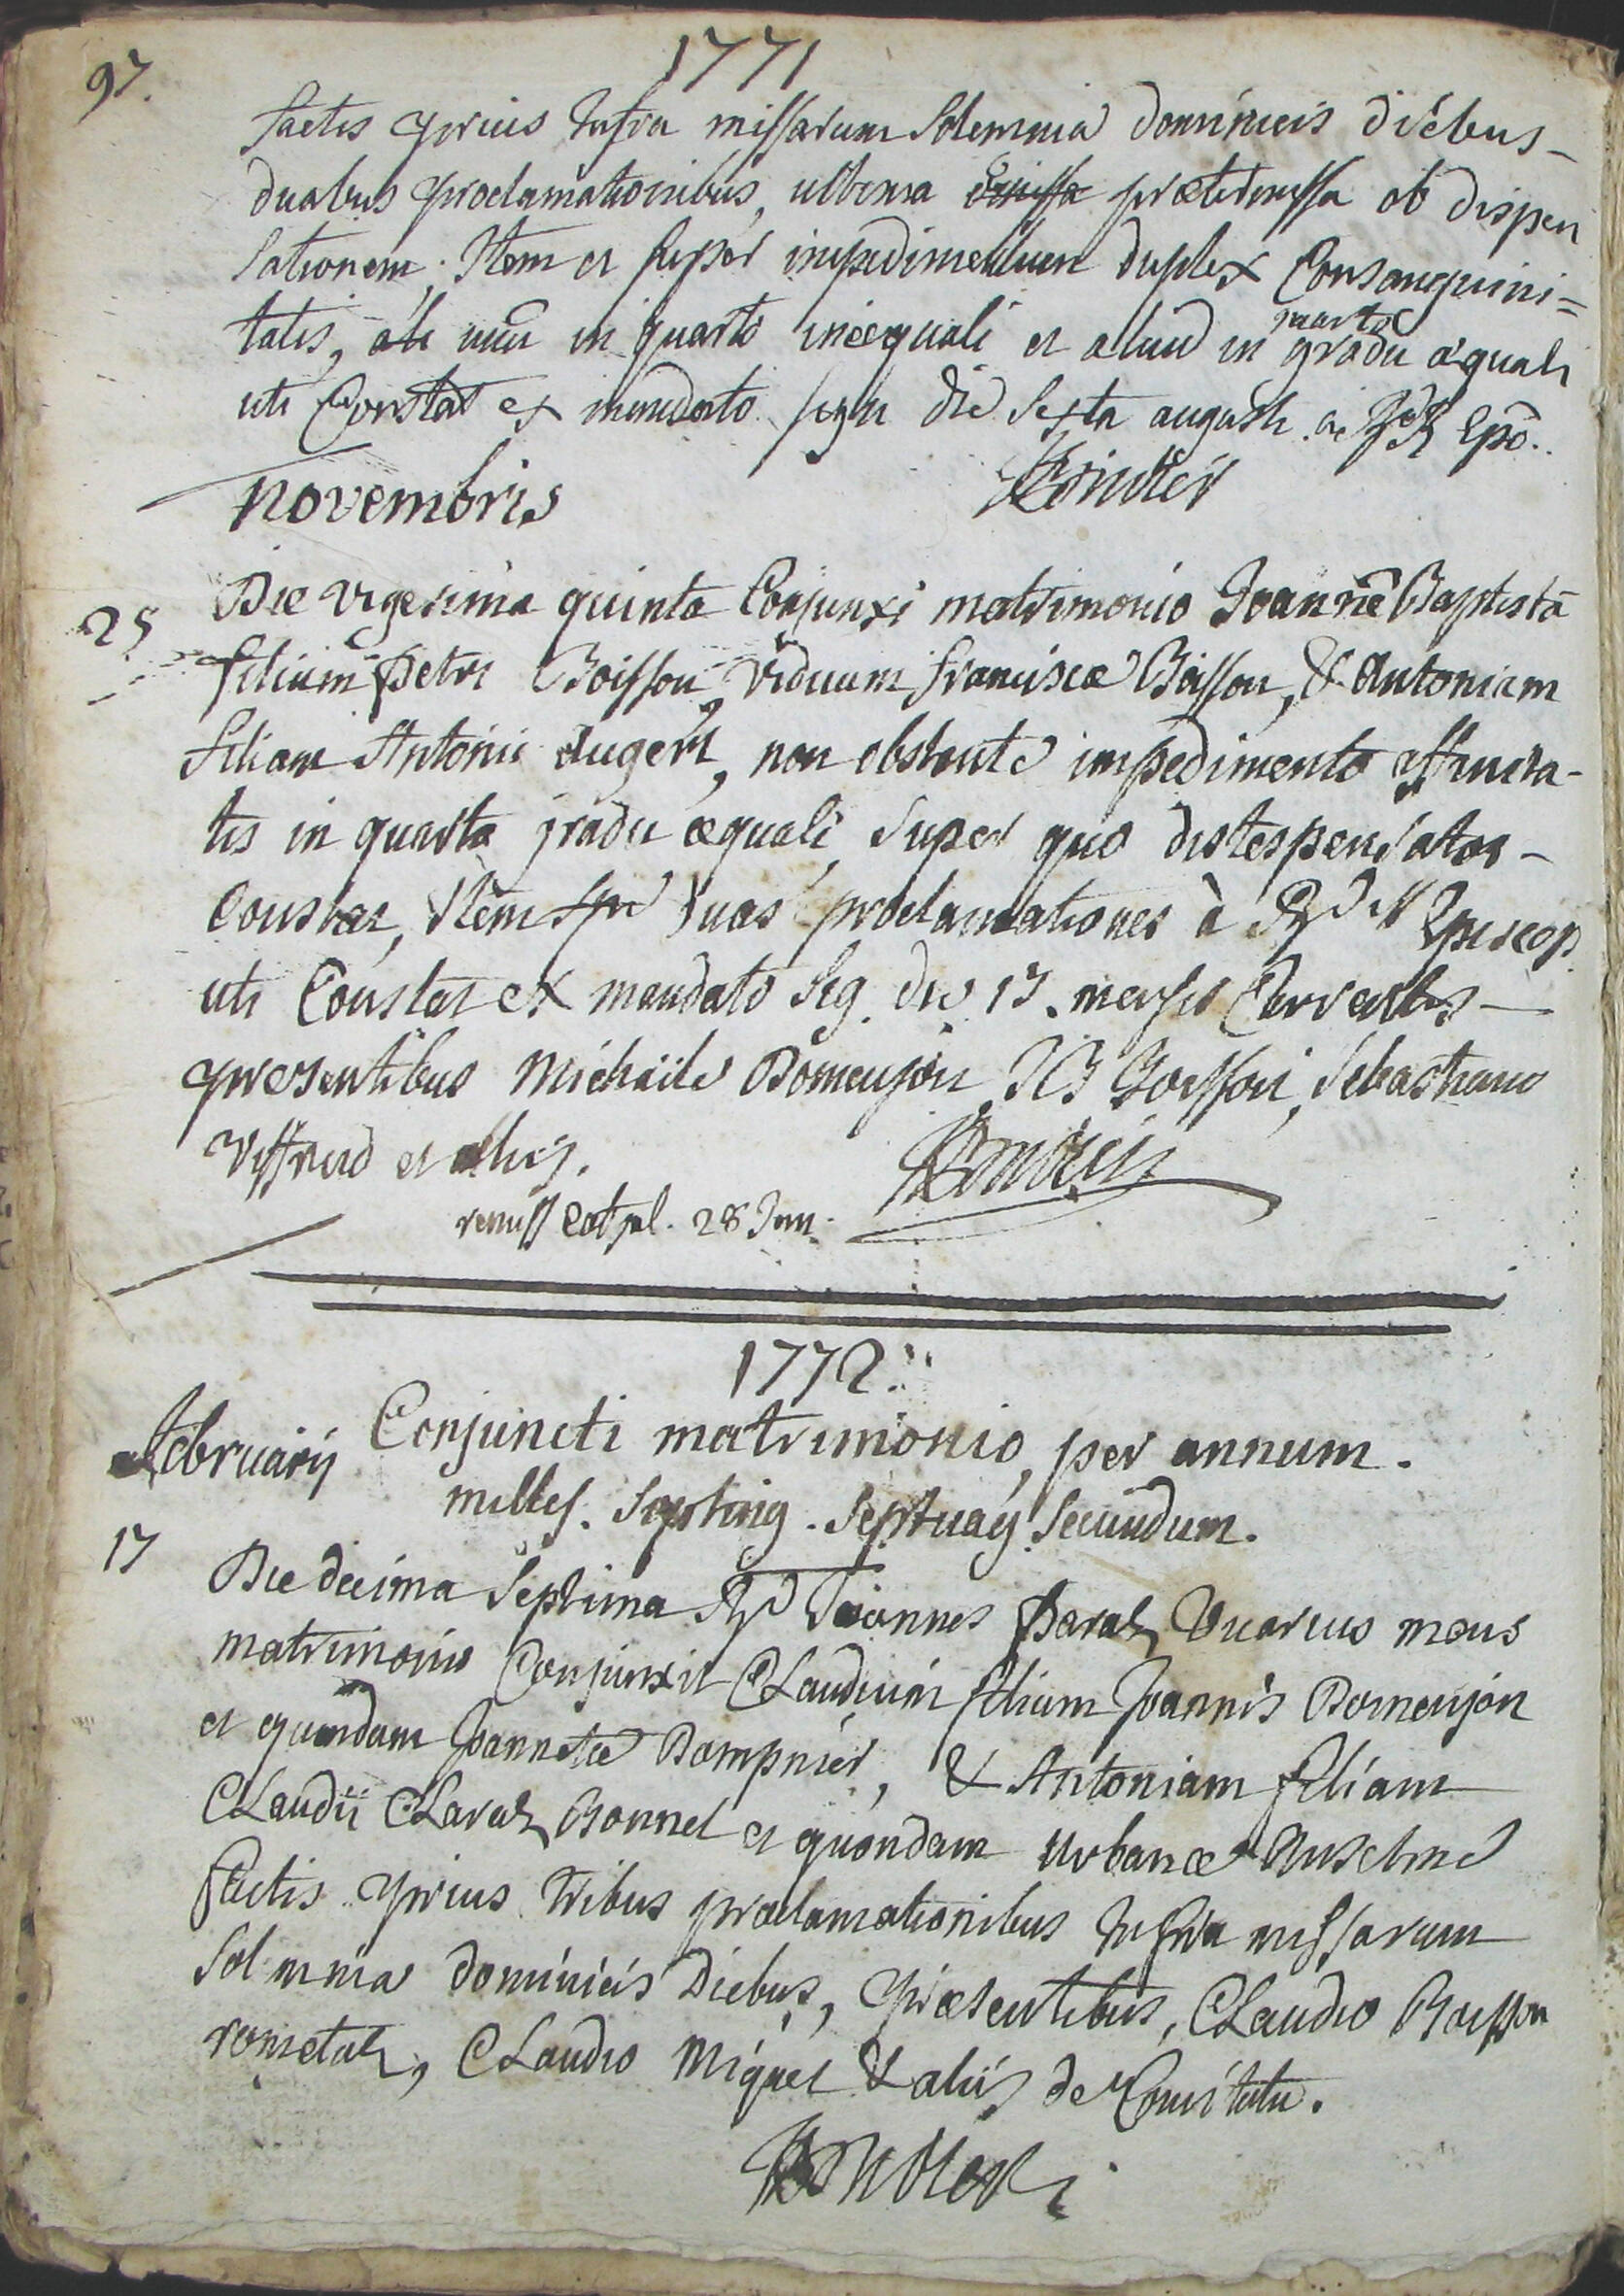 97.
1771
factis prius Infra missarum Solemnia dominicis diebus -
duabus proclamationibus, ultima omissa prætermissa ob dispen
sationem, Item et super impedimentum duplex Consanguini=
tatis, unu in quarto inæquali et aliud in quarto gradu æquali
uti Constat ex mandato sign die sexta augusti a Rdo Epō.
novembris
25
Die vigesima quinta Conjunxi matrimonio Joannē Baptistā
filium Petri Boisson, viduum franciscæ Boisson, & Antoniam
filiam Antonii Augert, non obstante impedimento affinita-
tis in quarto gradu æquali, super quo
Constat, Item duas proclamationes à Episcop
uti Constat ex mandato sig. die 17. mensis
presentibus Michaële Domenjon, JB Boisson, Sebastiano
Viffred et aliis.
remiss 28 Jan.
1772.
February
Conjuncti matrimonio, per annum.
milles. septing. septuag. secundum.
17
Die decima septima Rd Joannes Baral, Vicarius meus
matrimonio Conjunxit Claudium filium Joannis Domenjon
et quondam Joannetæ Dompnier, & Antoniam filiam
Claudii Claraz Bonnel et quondam Urbanæ Anselme
factis prius tribus proclamationibus Infra missarum
Solemnia dominicis Diebus, præsentibus, Claudio Boisson
rometal, Claudio Miguet & aliis de Comitatu.